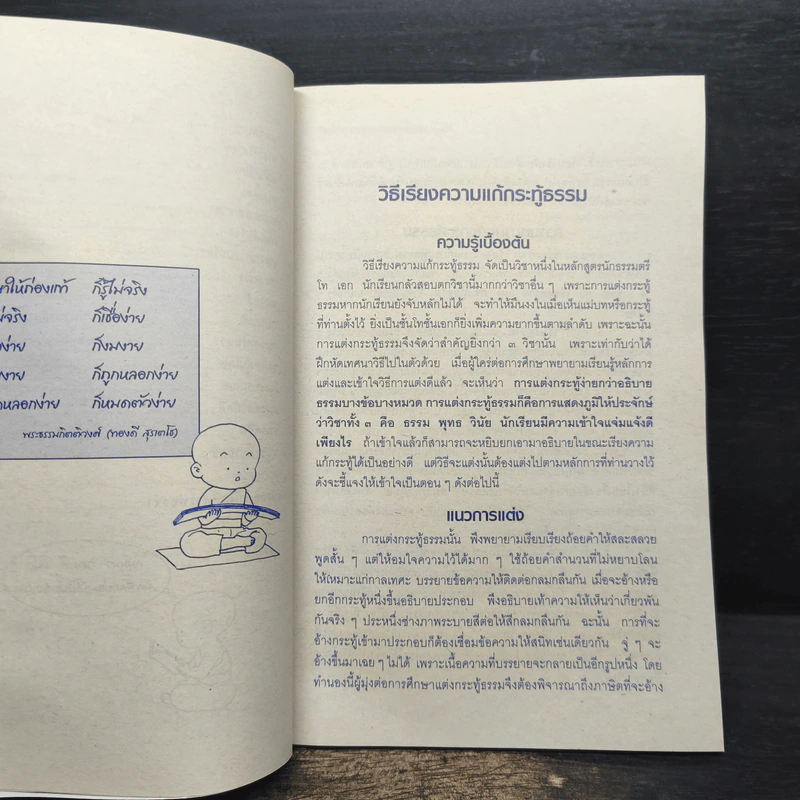 าให้ถ่องแท้ ก็รู้ไม่จริง
ม่จริง ก็เชื่อง่าย
ง่าย ก็งมงาย
งาย ก็ถูกหลอกง่าย
หลอกง่าย ก็หมดตัวง่าย
พระธรรมกิตติวงศ์ (ทองดี สุรเตโช)
วิธีเรียงความแก้กระทู้ธรรม
ความรู้เบื้องต้น
วิธีเรียงความแก้กระทู้ธรรม จัดเป็นวิชาหนึ่งในหลักสูตรนักธรรมตรี
โท เอก นักเรียนกลัวสอบตกวิชานี้มากกว่าวิชาอื่น ๆ เพราะการแต่งกระทู้
ธรรมหากนักเรียนยังจับหลักไม่ได้ จะทำให้มึนงงในเมื่อเห็นแม่บทหรือกระทู้
ที่ท่านตั้งไว้ ยิ่งเป็นชั้นโทชั้นเอกก็ยิ่งเพิ่มความยากขึ้นตามลำดับ เพราะฉะนั้น
การแต่งกระทู้ธรรมจึงจัดว่าสำคัญยิ่งกว่า ๓ วิชานั้น เพราะเท่ากับว่าได้
ฝึกหัดเทศนาวิธีไปในตัวด้วย เมื่อผู้ใคร่ต่อการศึกษาพยายามเรียนรู้หลักการ
แต่งและเข้าใจวิธีการแต่งดีแล้ว จะเห็นว่า การแต่งกระทู้ง่ายกว่าอธิบาย
ธรรมบางข้อบางหมวด การแต่งกระทู้ธรรมก็คือการแสดงภูมิให้ประจักษ์
ว่าวิชาทั้ง ๓ คือ ธรรม พุทธ วินัย นักเรียนมีความเข้าใจแจ่มแจ้งดี
เพียงไร ถ้าเข้าใจแล้วก็สามารถจะหยิบยกเอามาอธิบายในขณะเรียงความ
แก้กระทู้ได้เป็นอย่างดี แต่วิธีจะแต่งนั้นต้องแต่งไปตามหลักการที่ท่านวางไว้
ดังจะชี้แจงให้เข้าใจเป็นตอน ๆ ดังต่อไปนี้
แนวการแต่ง
การแต่งกระทู้ธรรมนั้น พึงพยายามเรียบเรียงถ้อยคำให้สละสลวย
พูดสั้น ๆ แต่ให้อมใจความไว้ได้มาก ๆ ใช้ถ้อยคำสำนวนที่ไม่หยาบโลน
ให้เหมาะแก่กาลเทศะ บรรยายข้อความให้ติดต่อกลมกลืนกัน เมื่อจะอ้างหรือ
ยกอีกกระทู้หนึ่งขึ้นอธิบายประกอบ พึงอธิบายเท้าความให้เห็นว่าเกี่ยวพัน
กันจริง ๆ ประหนึ่งช่างภาพระบายสีต่อให้สีกลมกลืนกัน ฉะนั้น การที่จะ
อ้างกระทู้เข้ามาประกอบก็ต้องเชื่อมข้อความให้สนิทเช่นเดียวกัน จู่ ๆ จะ
อ้างขึ้นมาเฉย ๆ ไม่ได้ เพราะเนื้อความที่บรรยายจะกลายเป็นอีกรูปหนึ่ง โดย
ทำนองนี้ผู้มุ่งต่อการศึกษาแต่งกระทู้ธรรมจึงต้องพิจารณาถึงภาษิตที่จะอ้าง